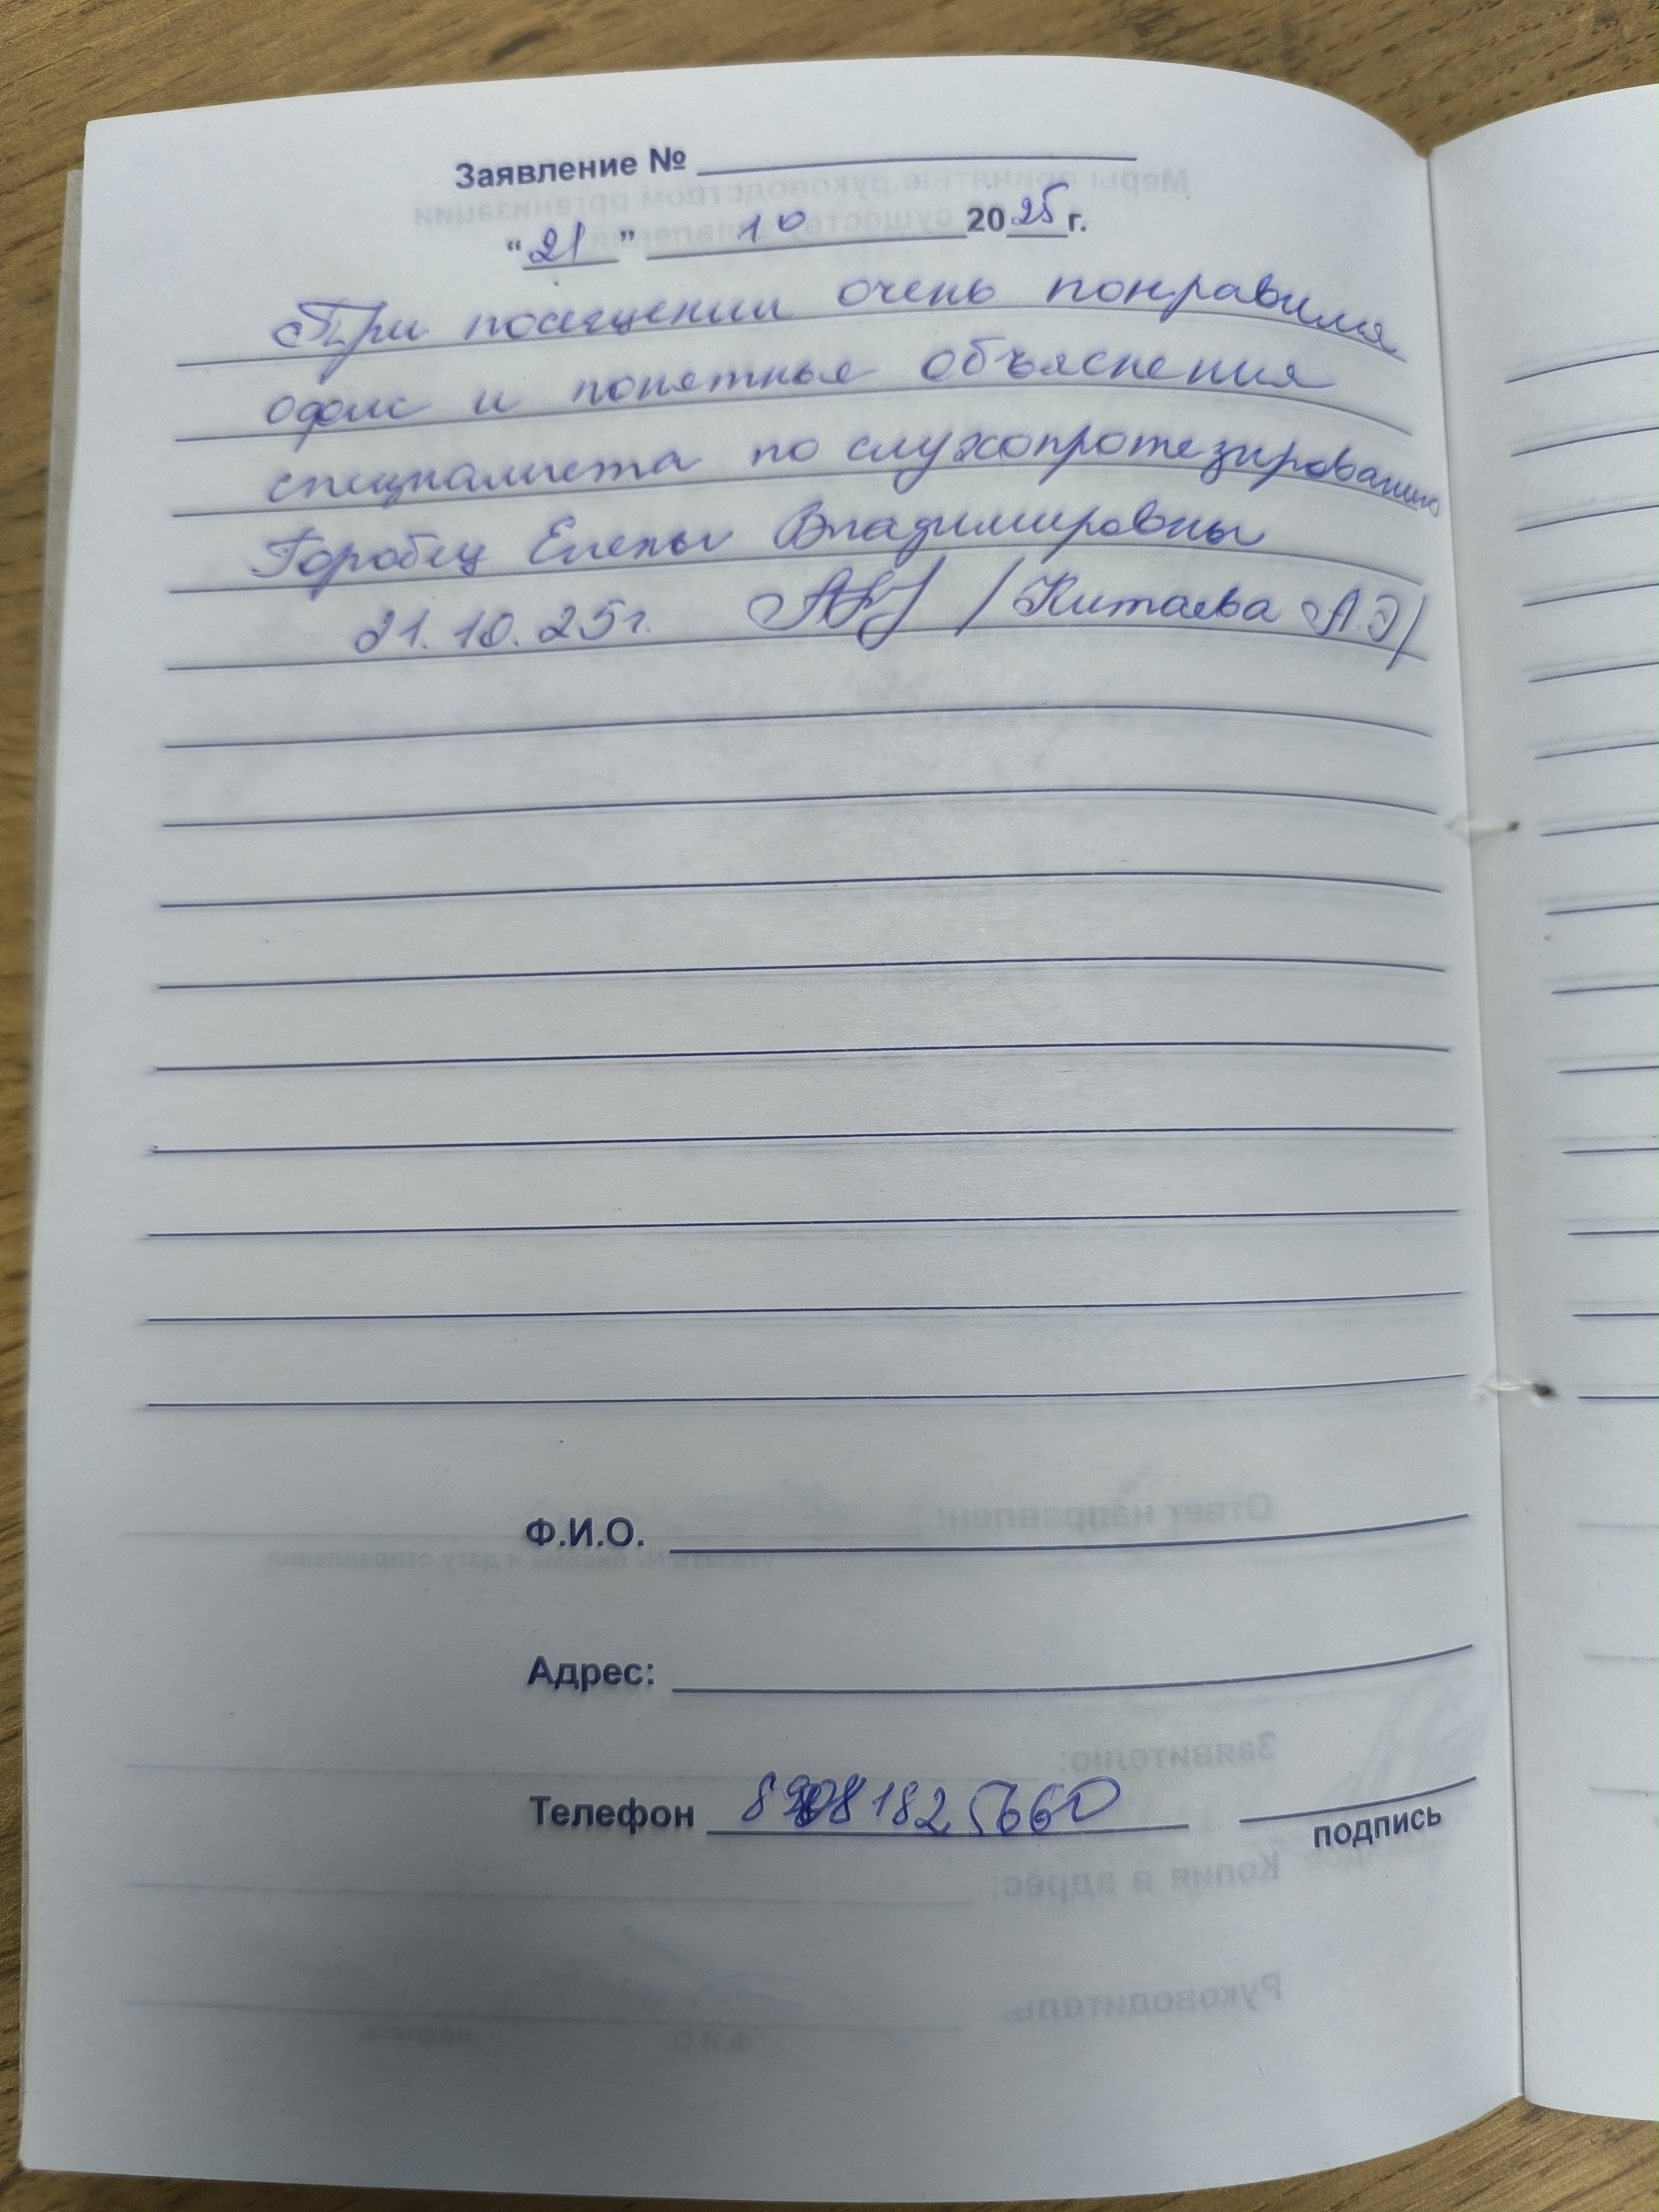 Заявление №
“21” 10 2025 г.
При посещении очень понравился
офис и понятные объяснения
специалиста по слухопротезированию
Горобец Елены Владимировны
21.10.25г. /Китаева А.Э/
Ф.И.О.
Адрес:
Телефон 89081825660
подпись